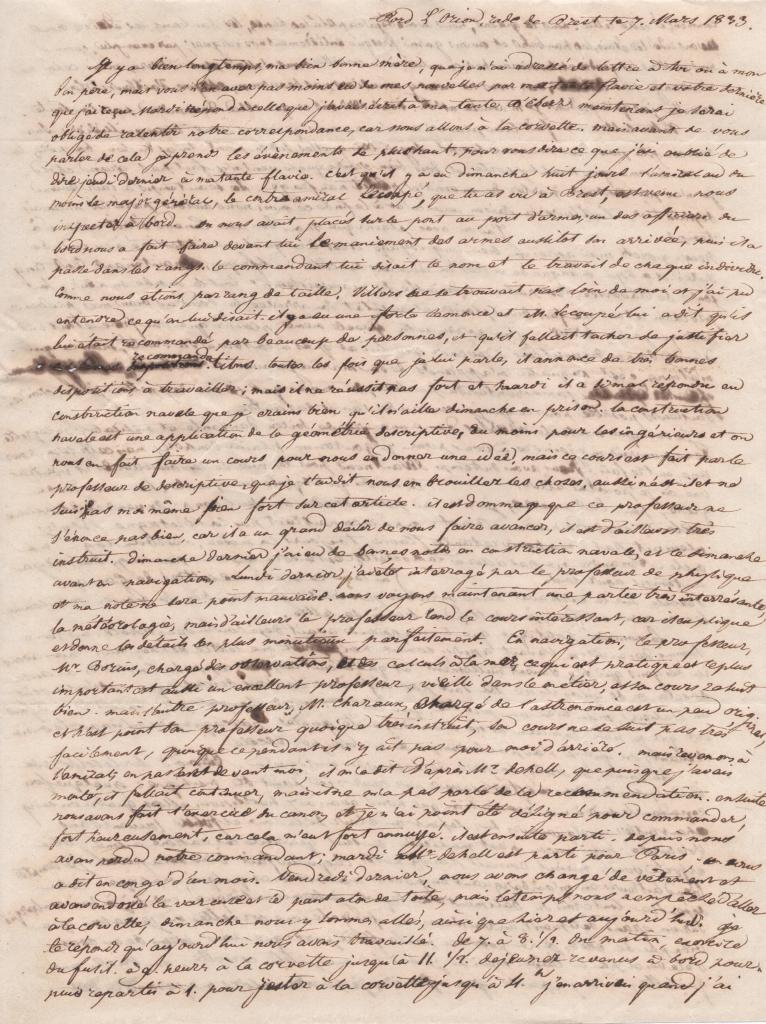 Bord L'Orion, rade de Brest le 7. Mars 1833.
Il y a bien longtemps, ma bien bonne mère, que je n'ai adressé de lettre à toi ou à mon
bon père, mais vous n'en avez pas moins eu de mes nouvelles par ma tante flavie et votre dernière
que j'ai reçu Mardi répond à celle que j'avais écrit à ma tante maintenant je serai
obligé de ralentir notre correspondance, car nous allons à la corvette. mais avant de vous
parler de cela je prends les évènements de plus haut, pour vous dire ce que j'ai oublié de
dire jeudi dernier à ma tante flavie. c'est qu'il y a eu dimanche huit jours l'amiral ou du
moins le major général, le contre amiral Lecoupé, que tu as vu à Brest, est venu nous
inspecter à bord. on nous avait placés sur le pont au port d'armes, un des officiers du
bord nous a fait faire devant lui le maniement des armes aussitôt son arrivée, puis il a
passé dans les rangs. le commandant lui disait le nom et le travail de chaque individu.
Comme nous étions par rang de taille, se trouvait pas loin de moi et j'ai pu
entendre ce qu'on lui disait. il y a eu une forte semonce et M. Lecoupé lui a dit qu'il
lui était recommandé par beaucoup de personnes, et qu'il fallait tacher de justifier
recommandations. toutes les fois que je lui parle, il annonce de très bonnes
dispositions à travailler; mais il ne réussit pas fort et mardi il a si mal répondu en
construction navale que je crains bien qu'il n'aille dimanche en prison. la construction
navale est une application de la géométrie descriptive, du moins pour les ingénieurs et on
nous en fait faire un cours pour nous en donner une idée, mais ce cours est fait par le
professeur de descriptive, que je t'ai dit nous embrouiller les choses, aussi n'est il et ne
suis pas moi même bien fort sur cet article. il est dommage que ce professeur ne
s'énonce pas bien, car il a un grand désir de nous faire avancer, il est d'ailleurs très
instruit. dimanche dernier j'ai eu de bonnes notes en construction navale, et le dimanche
avant en navigation. Lundi dernier, j'ai été interrogé par le professeur de physique
et ma note ne sera point mauvaise. nous voyons maintenant une partie très intéressante
la météorologie, mais d'ailleurs le professeur rend le cours intéressant, car il explique
et donne les détails les plus minutieux parfaitement. En navigation, le professeur,
Mr. chargé des observations, et des calculs à la mer, ce qui est pratique et le plus
important est aussi un excellent professeur, vieilli dans le métier, et son cours se suit
bien. mais l'autre professeur, M. chargé de l'astronomie est un peu original,
et n'est point bon professeur quoique très instruit, son cours ne se suit pas très
facilement, quoique cependant il n'y ait pas pour moi d'arriéré. mais revenons à
l'amiral, en passant devant moi, il m'a dit d'après Mr. dehell, que puisque j'avais
monté, il fallait continuer, mais il ne m'a pas parlé de la recommandation. ensuite
nous avons fait l'exercice du canon, et je n'ai point été désigné pour commander,
fort heureusement, car cela m'eut fort ennuyé. il est ensuite parti. depuis nous
avons perdu notre commandant; mardi Mr. dehell est parti pour Paris. on nous
a dit en congé d'un mois. Vendredi dernier, nous avons changé de vêtement et
avons endossé la vareuse et le pantalon de toile, mais le temps nous a empêché d'aller
à la corvette, dimanche nous y sommes allés, ainsi que hier et aujourd'hui.
qu'aujourd'hui nous avons travaillé. de 7. à 8. 1/2. du matin, exercice
du fusil. à 9. heures à la corvette jusqu'à 11. 1/2. déjeuner revenus à bord pour
puis repartis à 1. pour rester à la corvette jusqu'à 4. h j'en arrivais quand j'ai